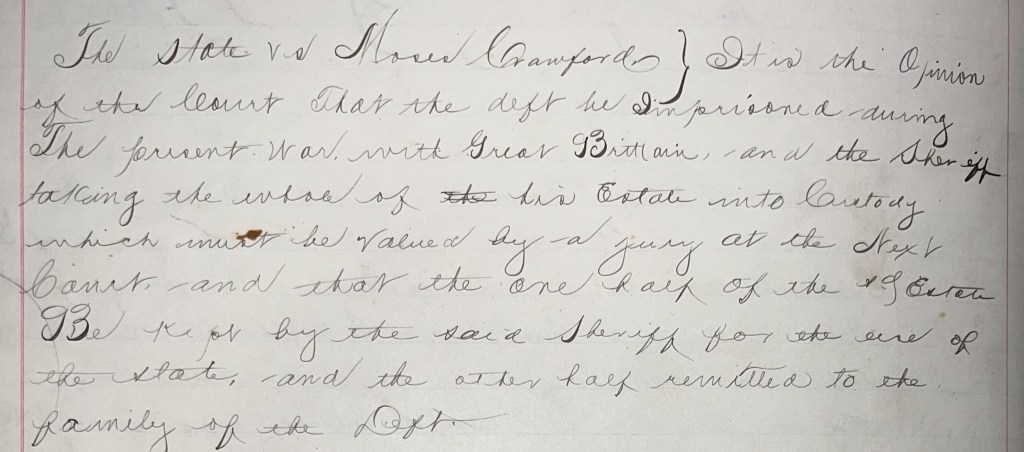 The State vs Moses Crawford } It is the Opinion
of the Court That the deft be Imprisoned during
The present War. with Great Brittain, and the Sheriff
taking the whole of the his Estate into Custody
which must be valued by a jury at the Next
Court. and that the one half of the sd Estate
Be Kept by the said Sheriff for the use of
the State, and the other half remitted to the
family of the Deft.